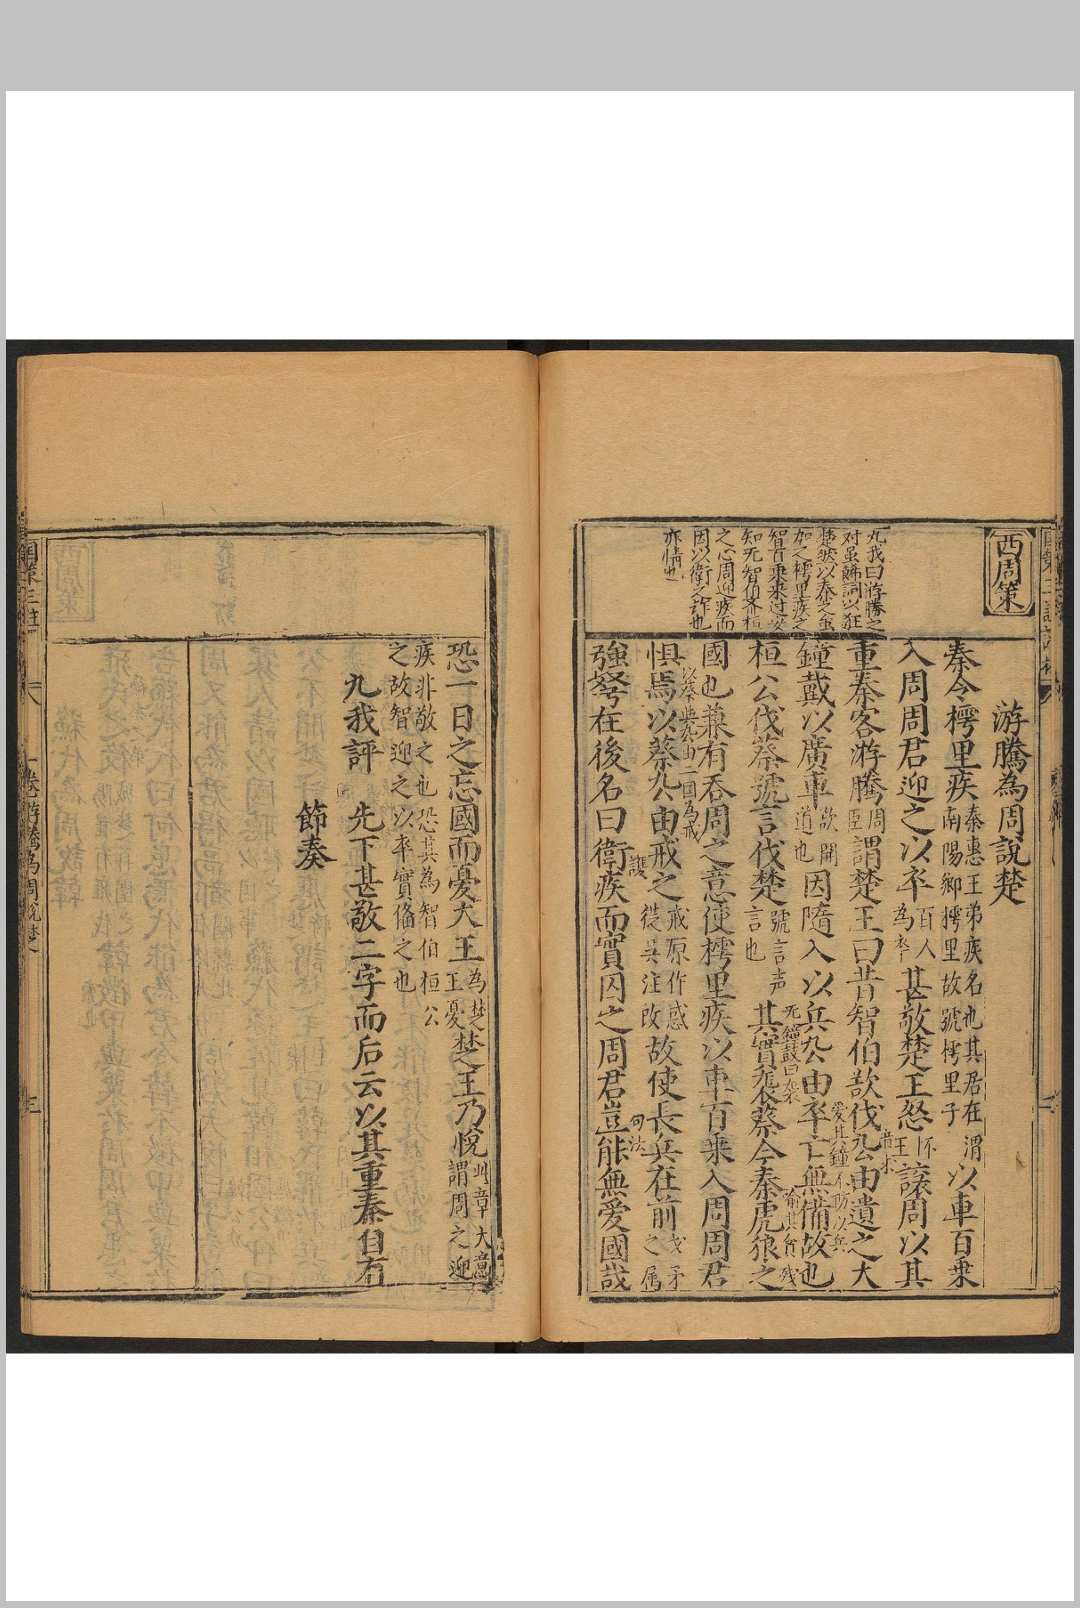 西周策
九我曰游騰之
对虽餙詞以狂
楚然以秦之金
加之樗里疾之
智百乘来过安
知无智伯齐桓
之心周迎疾而
因以衛之詐也
亦情也
游騰為周說楚
秦令樗里疾秦惠王弟疾名也其居在渭南陽鄉樗里故號樗里子以車百乗
入周周君迎之以卒百人為卒甚敬楚王怒王怀讓周以其
重秦客游騰周臣謂楚王曰昔智伯欲伐厹由遺之大
鐘戴以廣車欲開道也因隨入以兵厹由卒亡無備故也
桓公伐蔡號言伐楚號言声言也其實襲无鐘鼓曰襲蔡今秦虎狼之
國也兼有吞周之意使樗里疾以車百乗入周周君
懼焉以蔡厹由戒之戒原作感從吴注改故使長兵在前戈矛之属
強弩在後名曰衛疾而實囚之周君豈能無愛國哉
音求
愛其鐘不防以兵
喻其貪残
以蔡與厹由二国為戒
護
句法
恐一日之忘國而憂大王為楚王憂楚王乃悅此章大意謂周之迎
疾非敬之也恐其為智伯桓公
之故智迎之以卒實偹之也
九我評　先下甚敬二字而后云以其重秦自有
節奏
國策三註
一卷游騰為周說楚